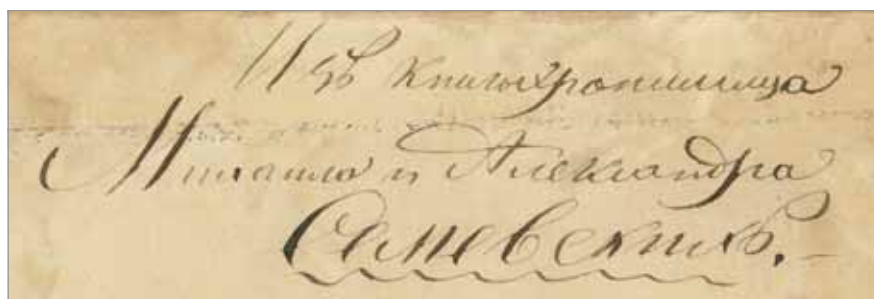 Изъ Книгохранилища
Михаила и Александра
Семевскихъ.